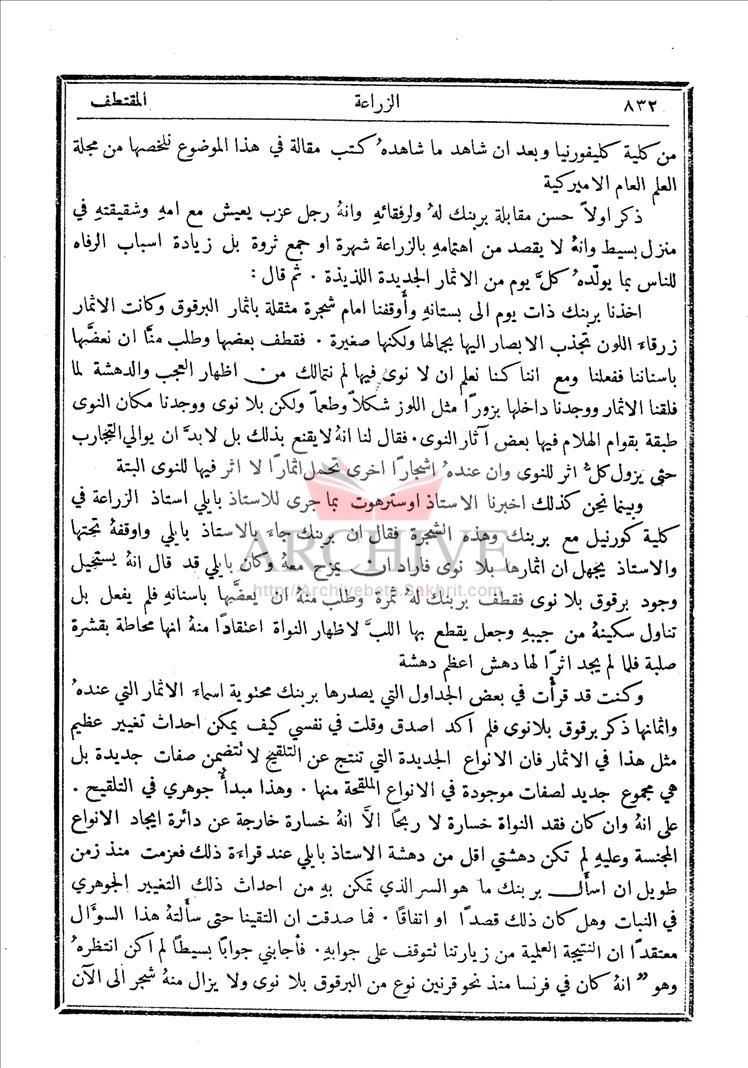 ٨٣٢ الزراعة المقتطف
من كلية كليفورنيا وبعد ان شاهد ما شاهدهُ كتب مقالة في هذا الموضوع نلخصها من مجلة
العلم العام الاميركية
ذكر اولاً حسن مقابلة بربنك لهُ ولرفقائهِ وانهُ رجل عزب يعيش مع امهِ وشقيقتهِ في
منزل بسيط وانهُ لا يقصد من اهتمامهِ بالزراعة شهرة او جمع ثروة بل زيادة اسباب الرفاه
للناس بما يولّدهُ كلَّ يوم من الاثمار الجديدة اللذيذة . ثم قال :
اخذنا بربنك ذات يوم الى بستانهِ وأوقفنا امام شجرة مثقلة باثمار البرقوق وكانت الاثمار
زرقاء اللون تجذب الابصار اليها بجمالها ولكنها صغيرة . فقطف بعضها وطلب منَّا ان نعضَّها
باسناننا ففعلنا ومع اننا كنا نعلم ان لا نوى فيها لم نتمالك من اظهار العجب والدهشة لما
فلقنا الاثمار ووجدنا داخلها بزورًا مثل اللوز شكلاً وطعماً ولكن بلا نوى ووجدنا مكان النوى
طبقة بقوام الهلام فيها بعض آثار النوى . فقال لنا انهُ لا يقنع بذلك بل لا بدَّ ان يوالي التجارب
حتى يزول كلُّ اثر للنوى وان عندهُ اشجارًا اخرى تحمل اثمارًا لا اثر فيها للنوى البتة
وبينما نحن كذلك اخبرنا الاستاذ اوسترهوت بما جرى للاستاذ بايلي استاذ الزراعة في
كلية كورنيل مع بربنك وهذه الشجرة فقال ان بربنك جاء بالاستاذ بايلي واوقفهُ تحتها
والاستاذ يجهل ان اثمارها بلا نوى فاراد ان يمزح معهُ وكان بايلي قد قال انهُ يستحيل
وجود برقوق بلا نوى فقطف بربنك لهُ ثمرة وطلب منهُ ان يعضَّها باسنانهِ فلم يفعل بل
تناول سكينهُ من جيبهِ وجعل يقطع بها اللبَّ لاظهار النواة اعتقادًا منهُ انها محاطة بقشرة
صلبة فلما لم يجد اثرًا لها دهش اعظم دهشة
وكنت قد قرأت في بعض الجداول التي يصدرها بربنك محتوية اسماء الاثمار التي عندهُ
واثمانها ذكر برقوق بلا نوى فلم أكد اصدق وقلت في نفسي كيف يمكن احداث تغيير عظيم
مثل هذا في الاثمار فان الانواع الجديدة التي تنتج عن التلقيح لا تتضمن صفات جديدة بل
هي مجموع جديد لصفات موجودة في الانواع الملقحة منها . وهذا مبدأ جوهري في التلقيح .
على انهُ وان كان فقد النواة خسارة لا ربحًا الاَّ انهُ خسارة خارجة عن دائرة ايجاد الانواع
المجنسة وعليهِ لم تكن دهشتي اقل من دهشة الاستاذ بايلي عند قراءة ذلك فعزمت منذ زمن
طويل ان اسأل بربنك ما هو السر الذي تمكن بهِ من احداث ذلك التغيير الجوهري
في النبات وهل كان ذلك قصدًا او اتفاقًا . فما صدقت ان التقينا حتى سألتهُ هذا السوآل
معتقدًا ان النتيجة العلمية من زيارتنا تتوقف على جوابهِ . فأجابني جوابًا بسيطًا لم اكن انتظرهُ
وهو " انهُ كان في فرنسا منذ نحو قرنين نوع من البرقوق بلا نوى ولا يزال منهُ شجر الى الآن
ARCHIVE
http://Archivebeta.Sakhrit.com